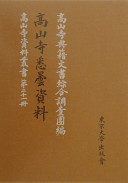 高山寺典籍文書綜合調査團編
高山寺悉曇資料
高山寺資料叢書 第二十一冊
東京大学出版会